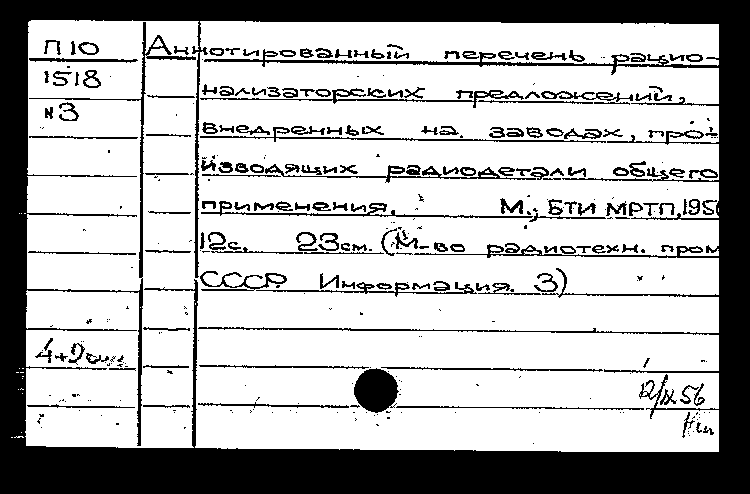 П 10
1518
N3
Аннотированный перечень рацио-
нализаторских предложений,
внедренных на заводах, про-
изводящих радиодетали общего
применения. М., БТИ МРТП, 195
12с. 23см. (М-во радиотехн. пром
СССР. Информация. 3)
12/IX 56